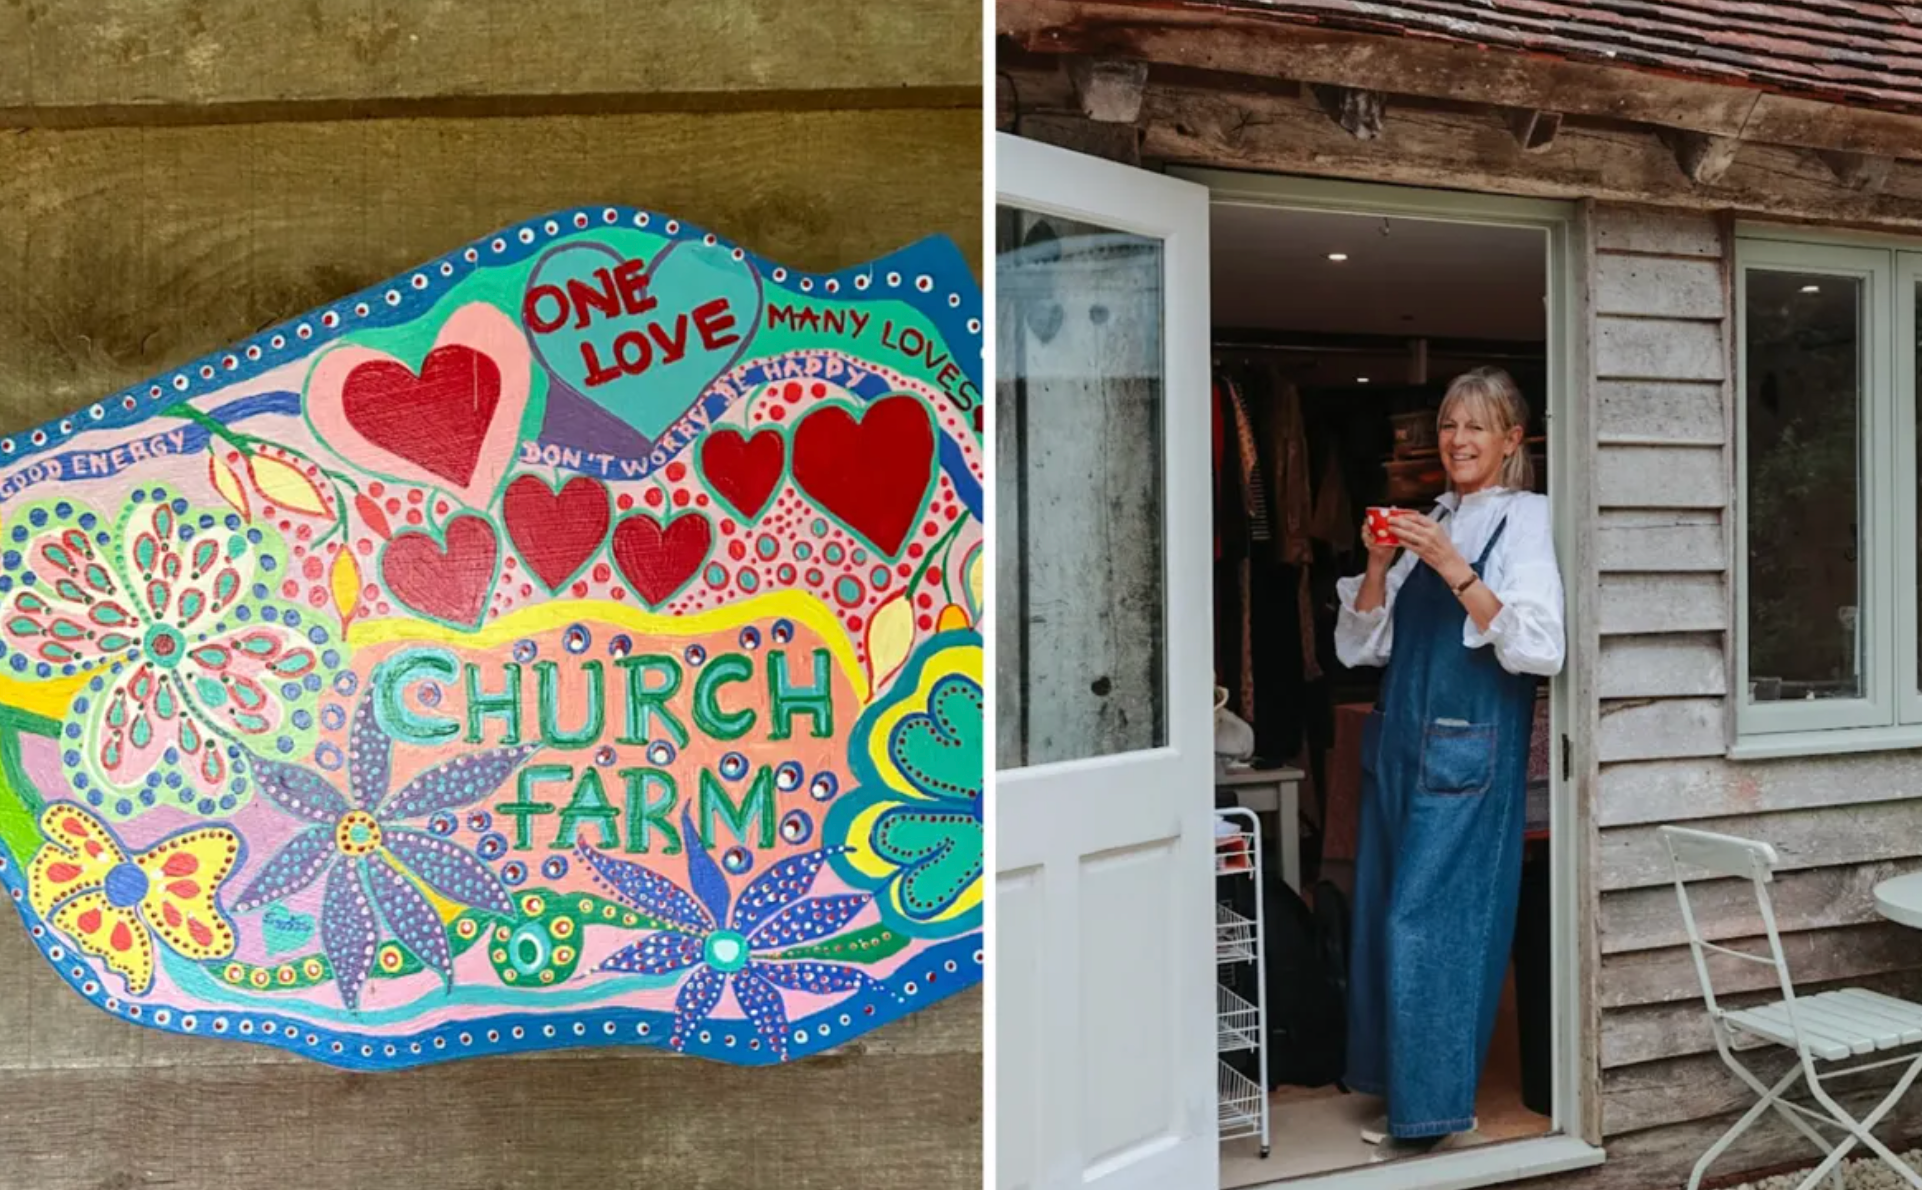 ONE
LOVE
MANY LOVES
DON'T WORRY BE HAPPY
GOOD ENERGY
CHURCH
FARM